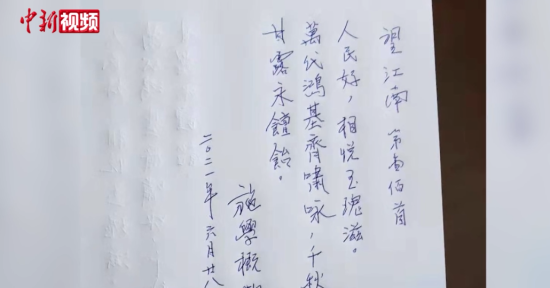 中新视频
望江南 第壹佰首
人民好，相悦玉瑰滋。
萬代鴻基齊嘯咏，千秋
甘露永饘飴。
施學概
二〇二一年六月廿八